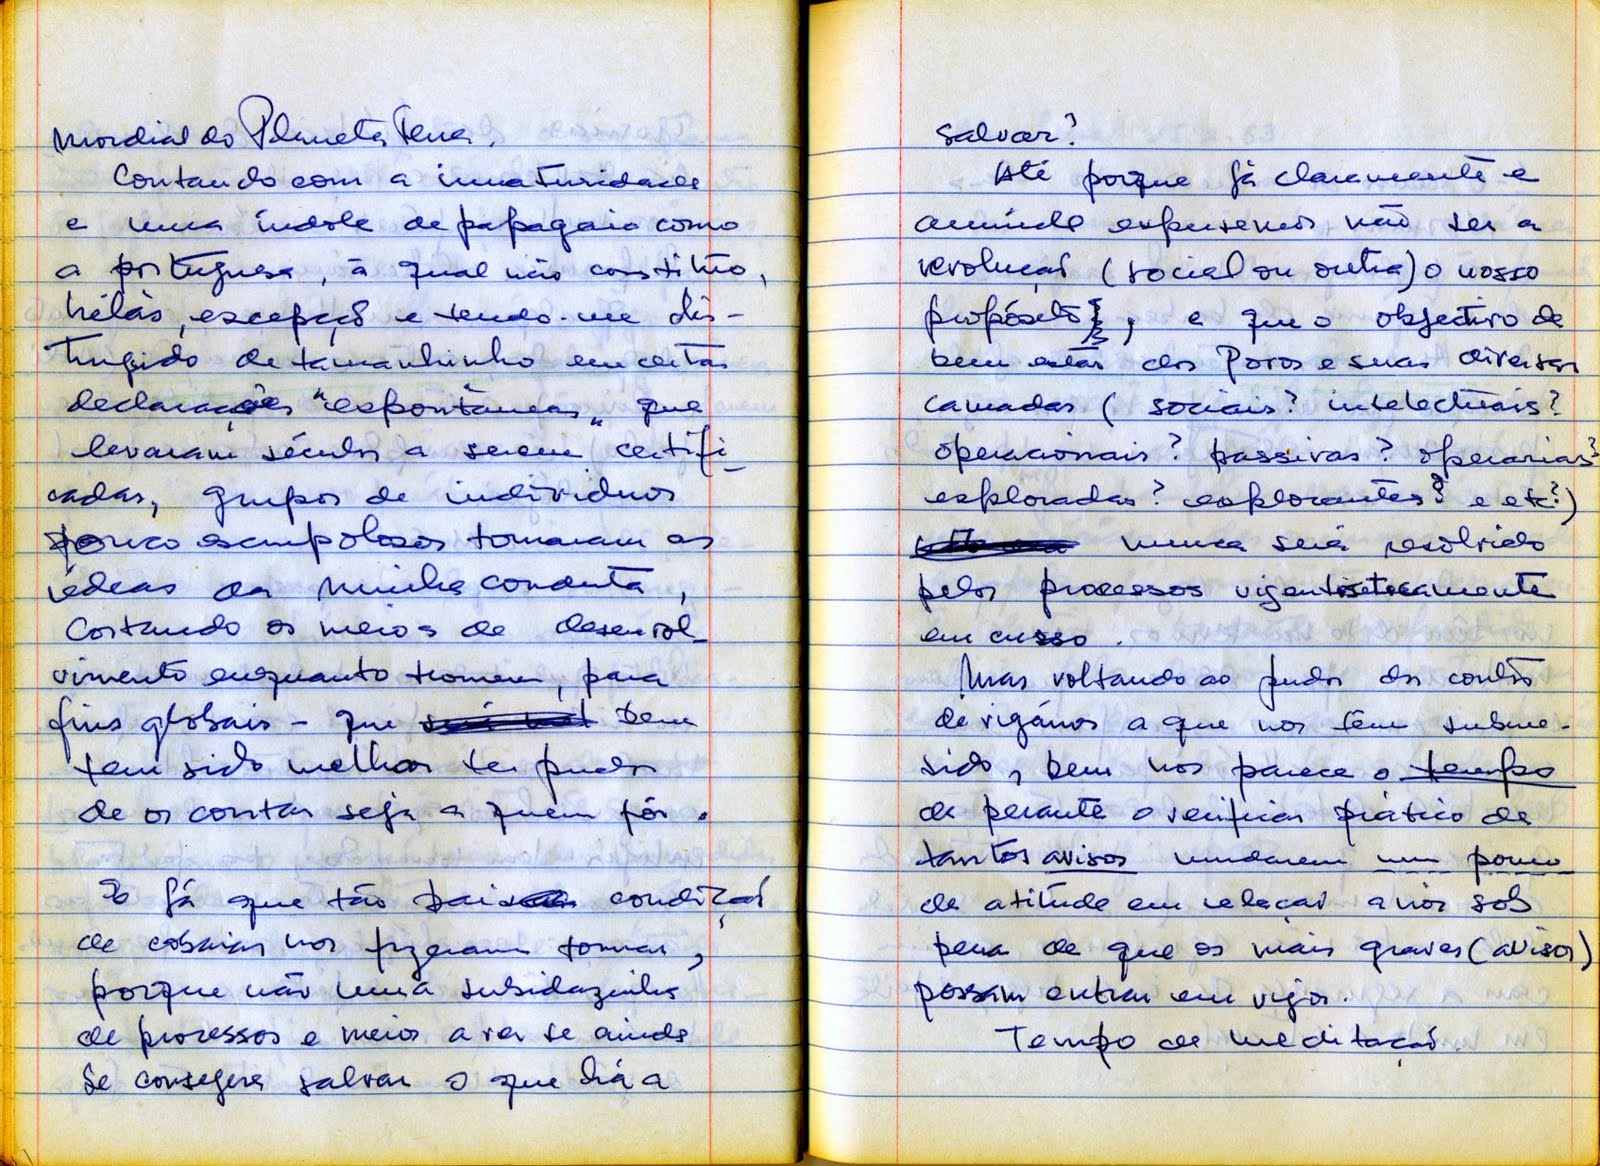 mordial do Planeta Terra.
Contando com a imaturidade
e uma índole de papagaio como
a portuguesa, à qual não constituo,
hélàs, excepção e tendo-me dis-
tinguido de tamanhinho em certas
declarações "espontâneas" que
levaram séculos a serem certifi-
cadas, grupos de indivíduos
pouco escrupolosos tomaram as
rédeas da minha conduta,
cortando os meios de desenvol-
vimento enquanto homem, para
fins globais - que bem
tem sido melhor ter pudor
de os contar seja a quem fôr.
E já que tão condição
de cobaias nos fizeram tomar,
porque não uma subidazinha
de processos e meios a ver se ainda
se consegue salvar o que há a
salvar?
Até porque já claramente e
amiúde expusemos não ser a
revolução (social ou outra) o nosso
propósito, e que o objectivo de
bem estar dos Povos e suas diversas
camadas (sociais? intelectuais?
operacionais? passivas? operárias?
exploradas? explorantes? e etc?)
nunca será resolvido
pelos processos
em curso.
Mas voltando ao pudor dos contos
de vigários a que nos têm subme-
tido, bem nos parece o tempo
de perante o verificar prático de
tantos avisos mudarem um pouco
de atitude em relação a nós sob
pena de que os mais graves (avisos)
possam entrar em vigor.
Tempo de meditação.